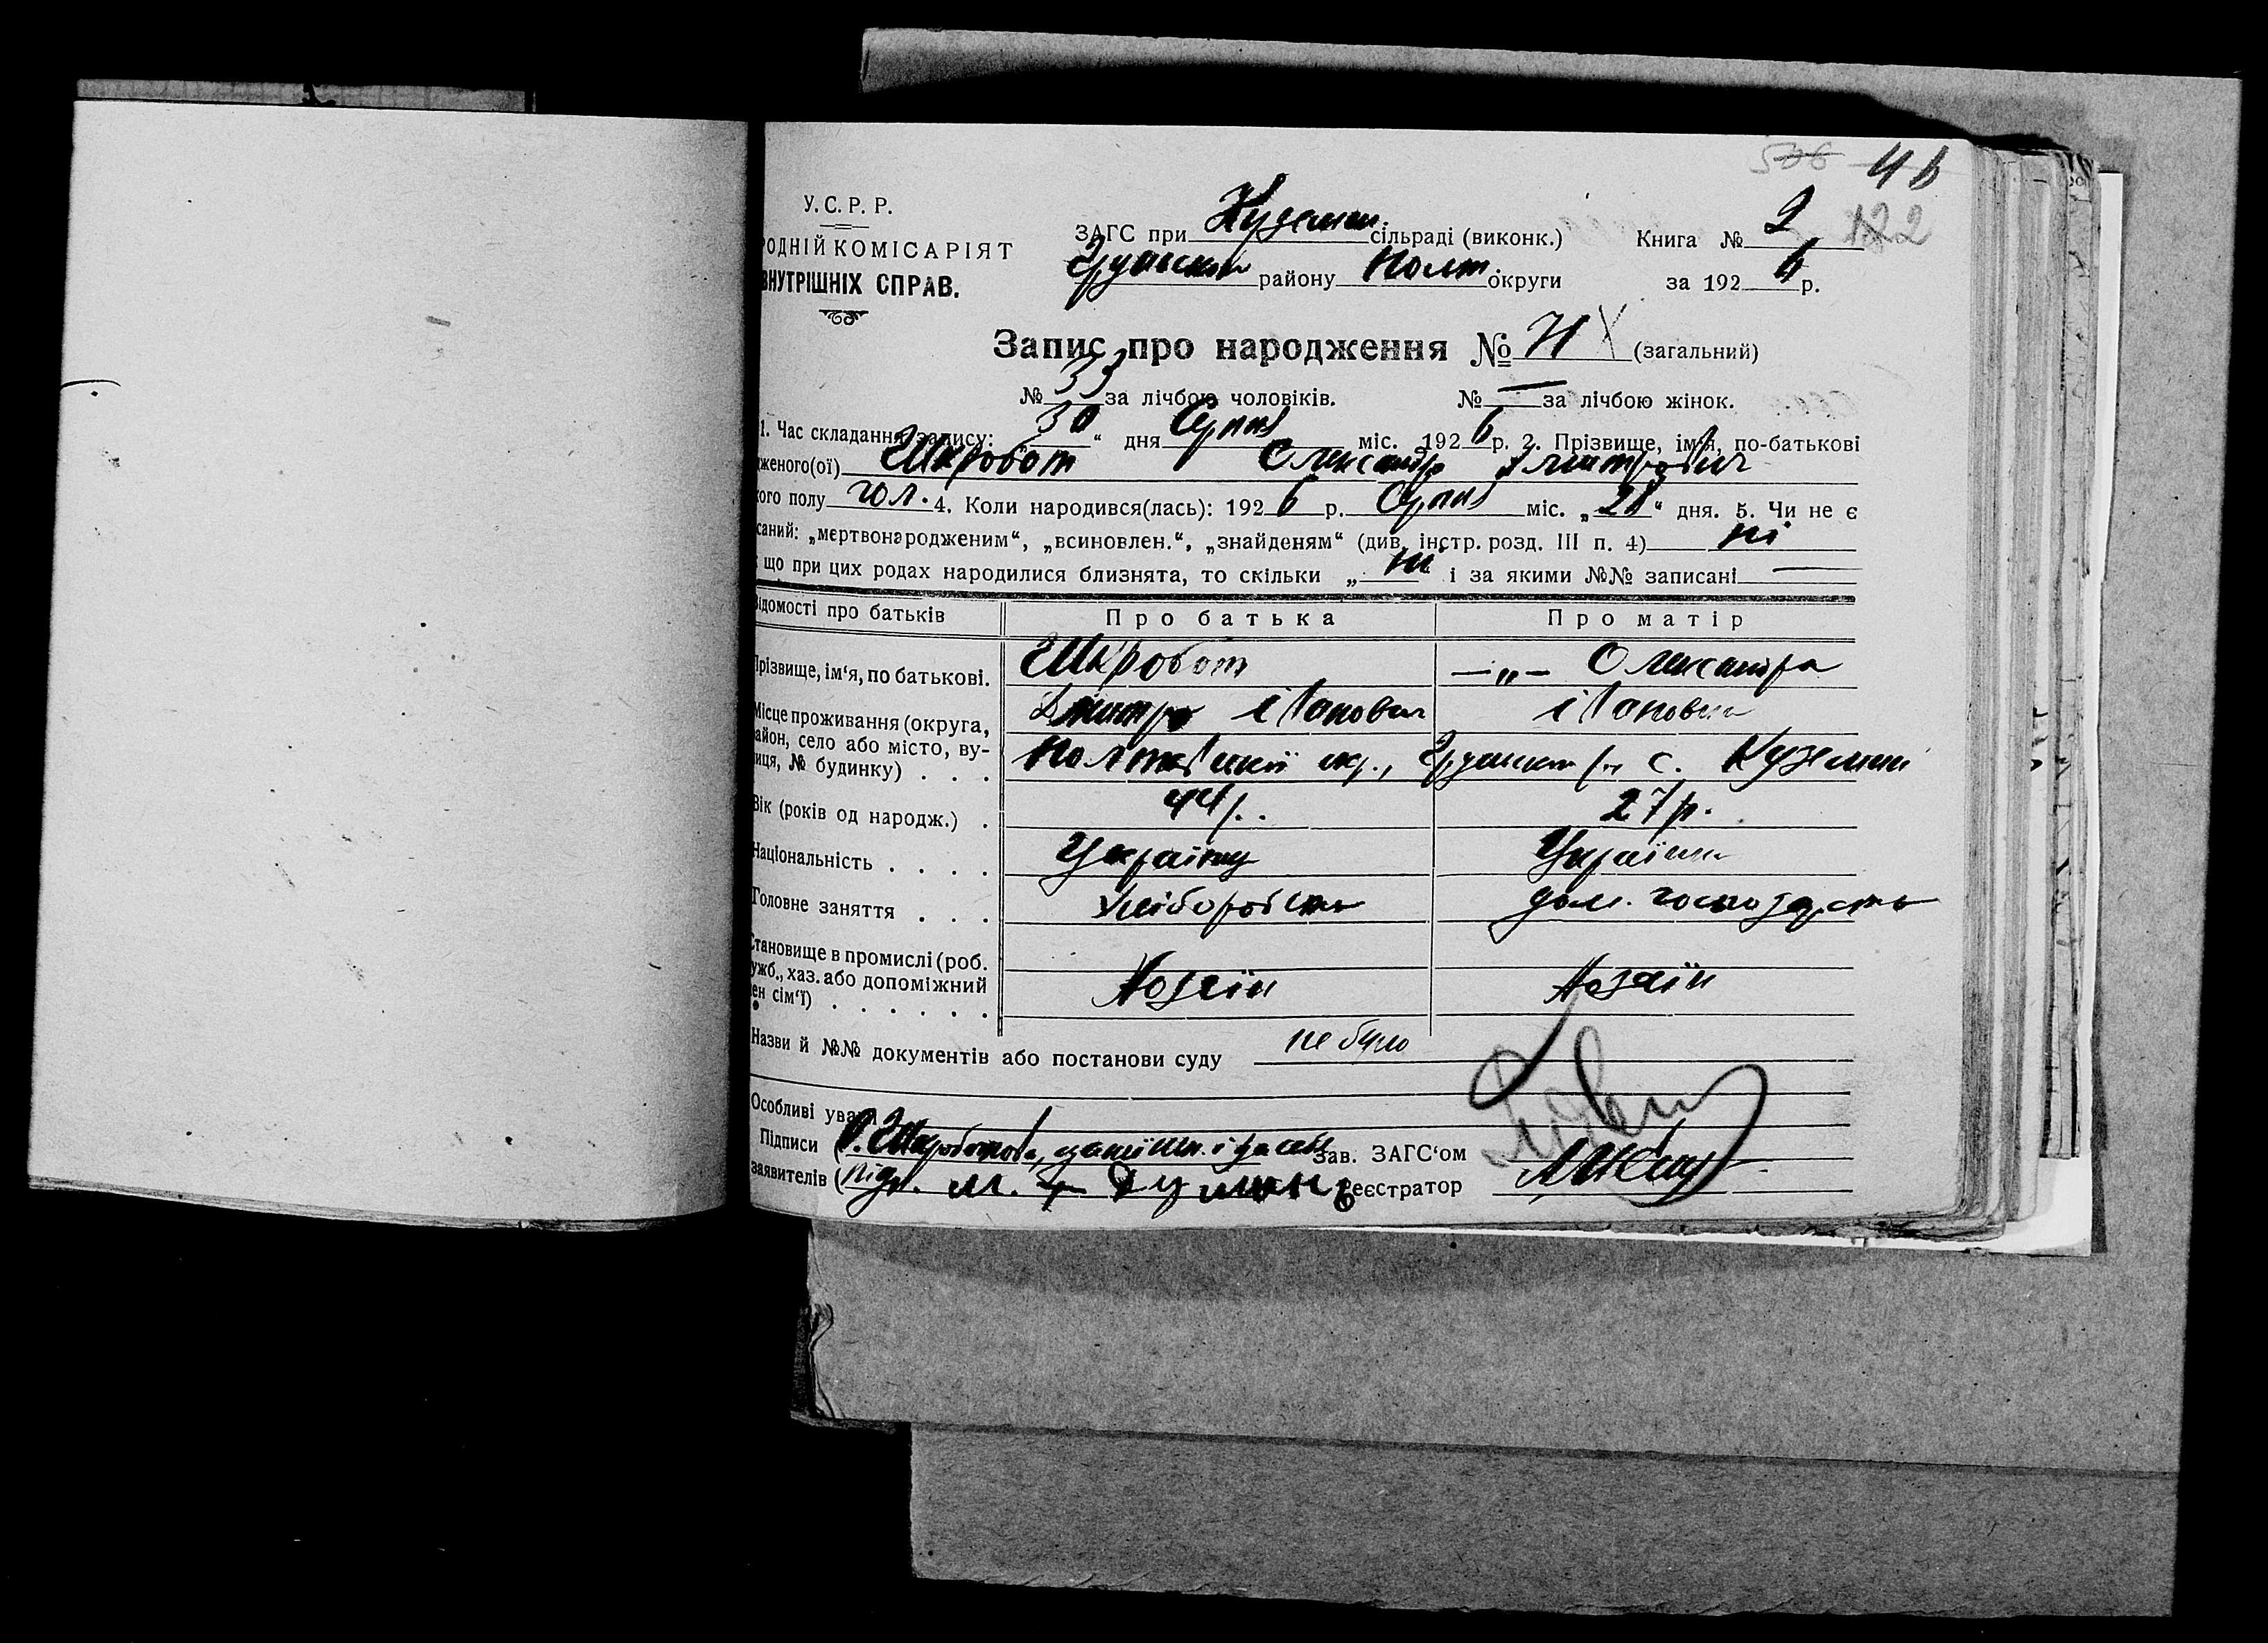 506 46
У.С.Р.Р.
РОДНІЙ КОМІСАРІЯТ
ВНУТРІШНІХ СПРАВ.
ЗАГС при Куземин. сільраді (виконк.) Книга № 2 122
Грунськом району Полт. округи за 1926 р.
Запис про народження № 71 (загальний)
№ 33 за лічбою чоловіків. № — за лічбою жінок.
1. Час складання запису: 30 “ дня Серпня міс. 1926 р. 2. Прізвище, ім'я, по-батькові
дженого(ої) Шкробот Олександр Дмитрович
ого полу чол. 4. Коли народився(лась): 1926 р. Серпня міс. „28“ дня. 5. Чи не є
саний: „мертвонародженим“, „всиновлен.“, „знайденям“ (див. інстр. розд. III п. 4) ні
що при цих родах народилися близнята, то скільки „ ні і за якими №№ записані —
відомості про батьків Про батька Про матір
Прізвище, ім'я, по батькові. Шкробот —„— Олександра
Дмитро іванович івановна
Місце проживання (округа,
район, село або місто, ву-
лиця, № будинку) . . . Полтавської окр., Грунськом р-н с. Куземин
Вік (років од народж.) . 44 р. 27 р.
Національність . . . . Українец Українка
Головне заняття . . . хліборобств дом. господарств
Становище в промислі (роб.
ужб., хаз. або допоміжний
ен сім'ї) . . . . . . Хозяїн Хозяїн
Назви й №№ документів або постанови суду не було
Особливі уваги
Підписи ( Шкроботова, і за себе Зав. ЗАГС'ом
заявителів ( підп. М. Реєстратор